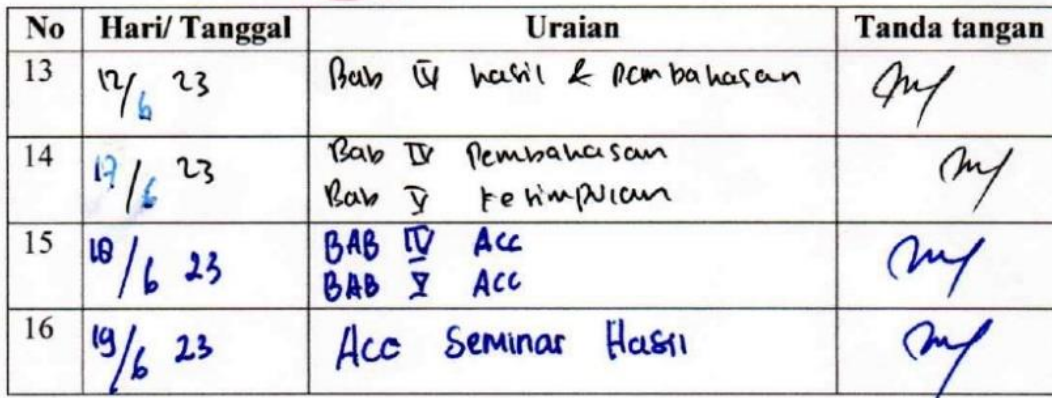 No Hari/ Tanggal Uraian Tanda tangan
13 12/6 23 Bab IV hasil & pembahasan
14 17/6 23 Bab IV Pembahasan
Bab V Kesimpulan
15 18/6 23 BAB IV Acc
BAB V Acc
16 19/6 23 Acc Seminar Hasil